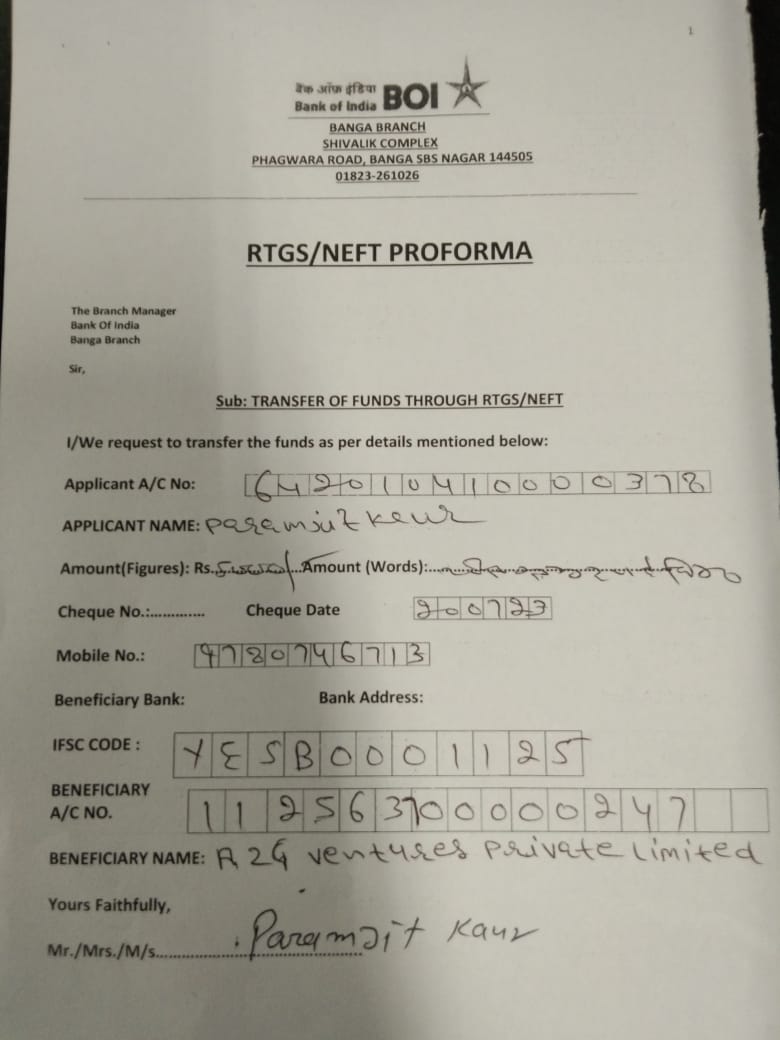 1
बैंक ऑफ़ इंडिया
Bank of India BOI
BANGA BRANCH
SHIVALIK COMPLEX
PHAGWARA ROAD, BANGA SBS NAGAR 144505
01823-261026
RTGS/NEFT PROFORMA
The Branch Manager
Bank Of India
Banga Branch
Sir,
Sub: TRANSFER OF FUNDS THROUGH RTGS/NEFT
I/We request to transfer the funds as per details mentioned below:
Applicant A/C No: 642010410000378
APPLICANT NAME: Paramjit Kaur
Amount(Figures): Rs. Amount (Words):
Cheque No.:............. Cheque Date 200723
Mobile No.: 9780746713
Beneficiary Bank: Bank Address:
IFSC CODE : YESB0001125
BENEFICIARY
A/C NO. 112563700000247
BENEFICIARY NAME: A2G ventures private limited
Yours Faithfully,
Mr./Mrs./M/s.................................... Paramjit Kaur